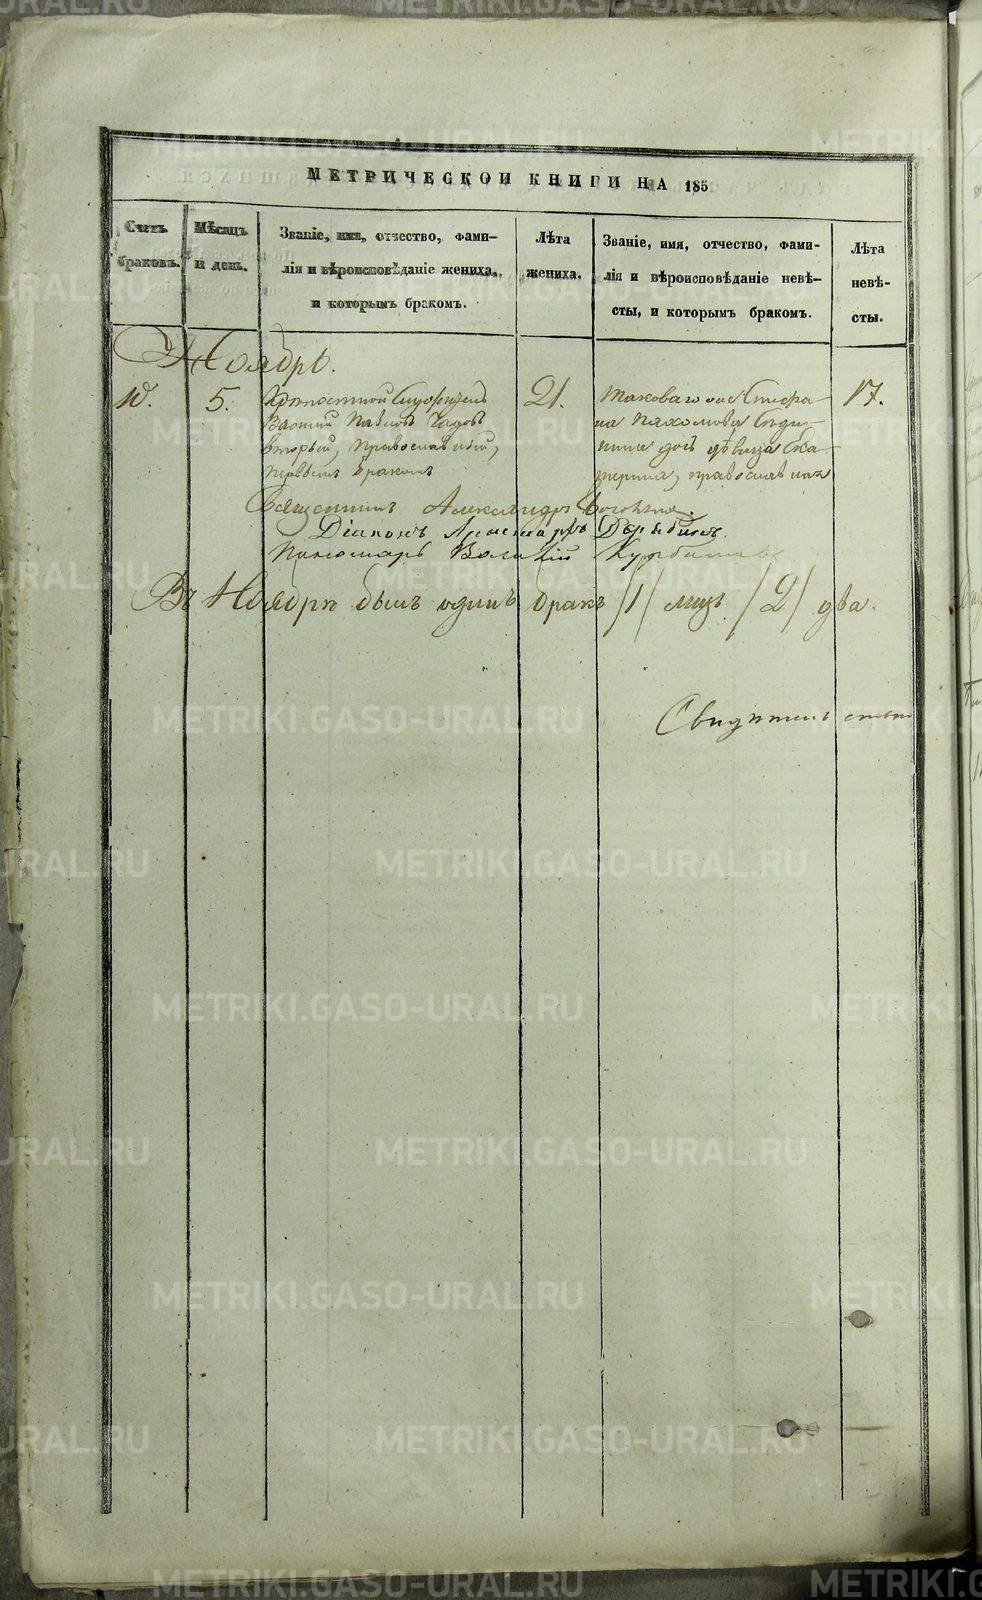 МЕТРИЧЕСКОЙ КНИГИ НА 185
Счетъ браковъ.
Мѣсяцъ и день.
Званіе, имя, отчество, фами-
лія и вѣроисповѣданіе жениха,
и которымъ бракомъ.
Лѣта жениха.
Званіе, имя, отчество, фами-
лія и вѣроисповѣданіе невѣ-
сты, и которымъ бракомъ.
Лѣта невѣ-
сты.
Ноябрь.
10.
5.
Василій Павловъ
вторый, православный,
первымъ бракомъ
21.
Таковаго же Стефа-
на Пахомова
дочь дѣвица Ека-
терина, православная
17.
Священникъ Александръ
Діаконъ Аристархъ Дерябинъ
Пономарь Василій Курбатовъ
Въ Ноябрѣ былъ одинъ бракъ /1/ лицъ /2/ два.
Свидѣтельств
METRIKI.GASO-URAL.RU